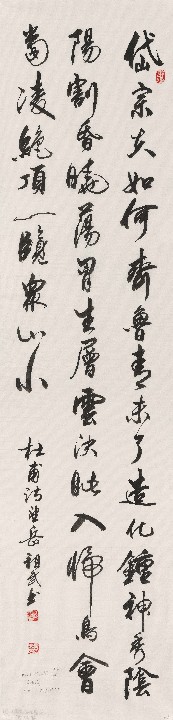 岱宗夫如何齊魯青未了造化鍾神秀陰
陽割昏曉蕩胷生層雲決眦入歸鳥會
當凌絶頂一覽衆山小
杜甫詩望岳祖武書